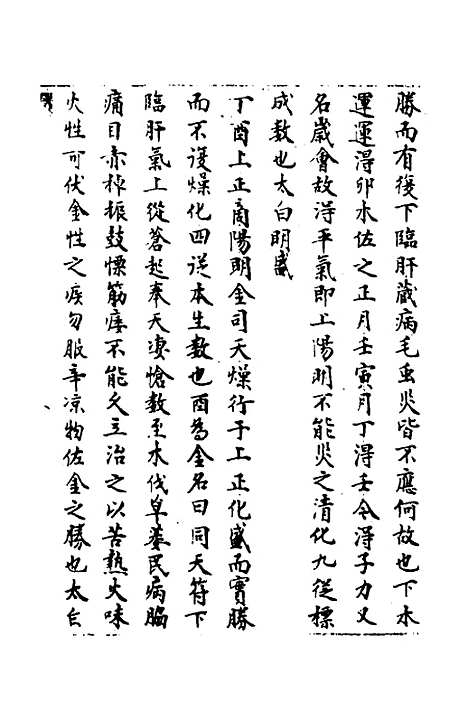 勝而有復下臨肝蔵病毛虫災皆不應何故也下木
運運得卯木佐之正月壬寅月丁得壬合得子力又
名歲會故得平氣即上陽明不能災之清化九從標
成数也太白明盛
丁酉上正商陽明金司天燥行于上正化盛而實勝
而不復燥化四從本生数也酉為金名曰同天符下
臨肝氣上從蒼起奉天凄愴数至木伐草萎民病脇
痛目赤掉振鼓慄筋痿不能久立治之以苦熱火味
火性可伏金性之疾勿服辛凉物佐金之勝也太白